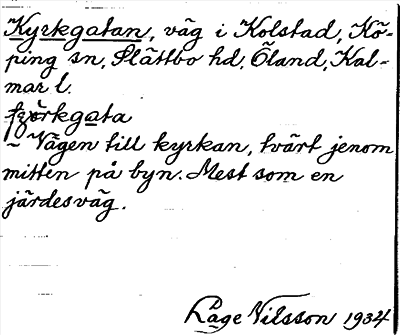 Kyrkgatan, väg i Kolstad, Kö-
ping sn, Slättbo hd, Öland, Kal-
mar l.
kgata
~ Vägen till kyrkan, tvärt jenom
mitten på byn. Mest som en
järdesväg.
Låge Nilsson 1934